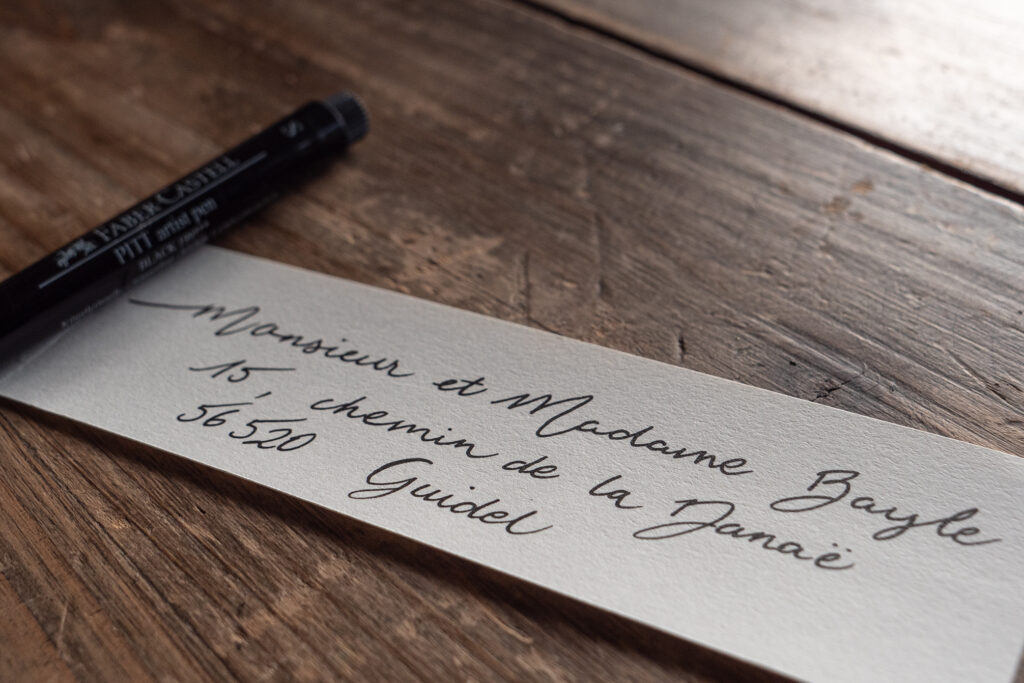 FABER-CASTELL
PITT artist pen
BLACK
S
Monsieur et Madame Bayle
15, chemin de la Danaë
56520 Guidel